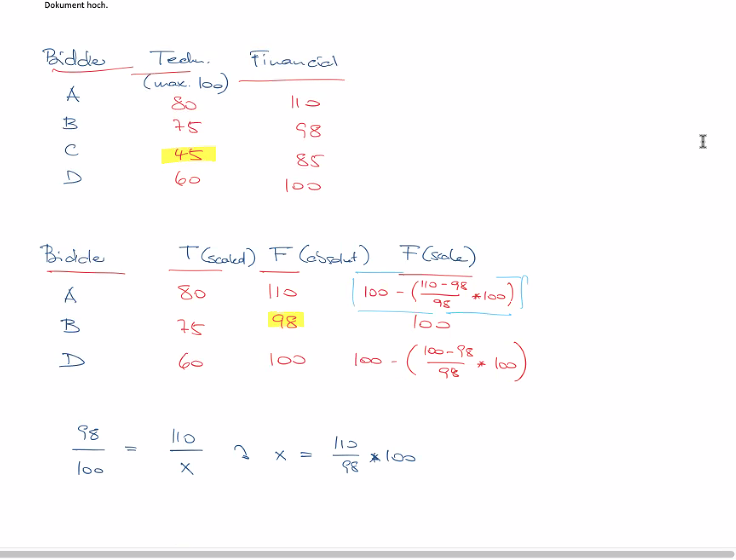 Dokument hoch.
Bidder Techn. Financial
(max. 100)
A 80 110
B 75 98
C 45 85
D 60 100
Bidder T (scaled) F (absolut) F (scale)
A 80 110 100 - (110-98/98 * 100)
B 75 98 100
D 60 100 100 - (100-98/98 * 100)
98/100 = 110/x x = 110/98 * 100